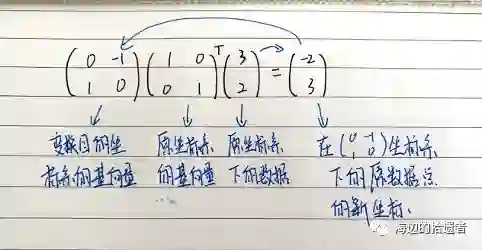 (0 -1
1 0) (1 0
0 1)^T (3
2) = (-2
3)
变换目的坐
标系的基向量
原坐标系
的基向量
原坐标系
下的数据
在(0 -1
1 0)坐标系
下的原数据点
的新坐标.
海边的拾遗者